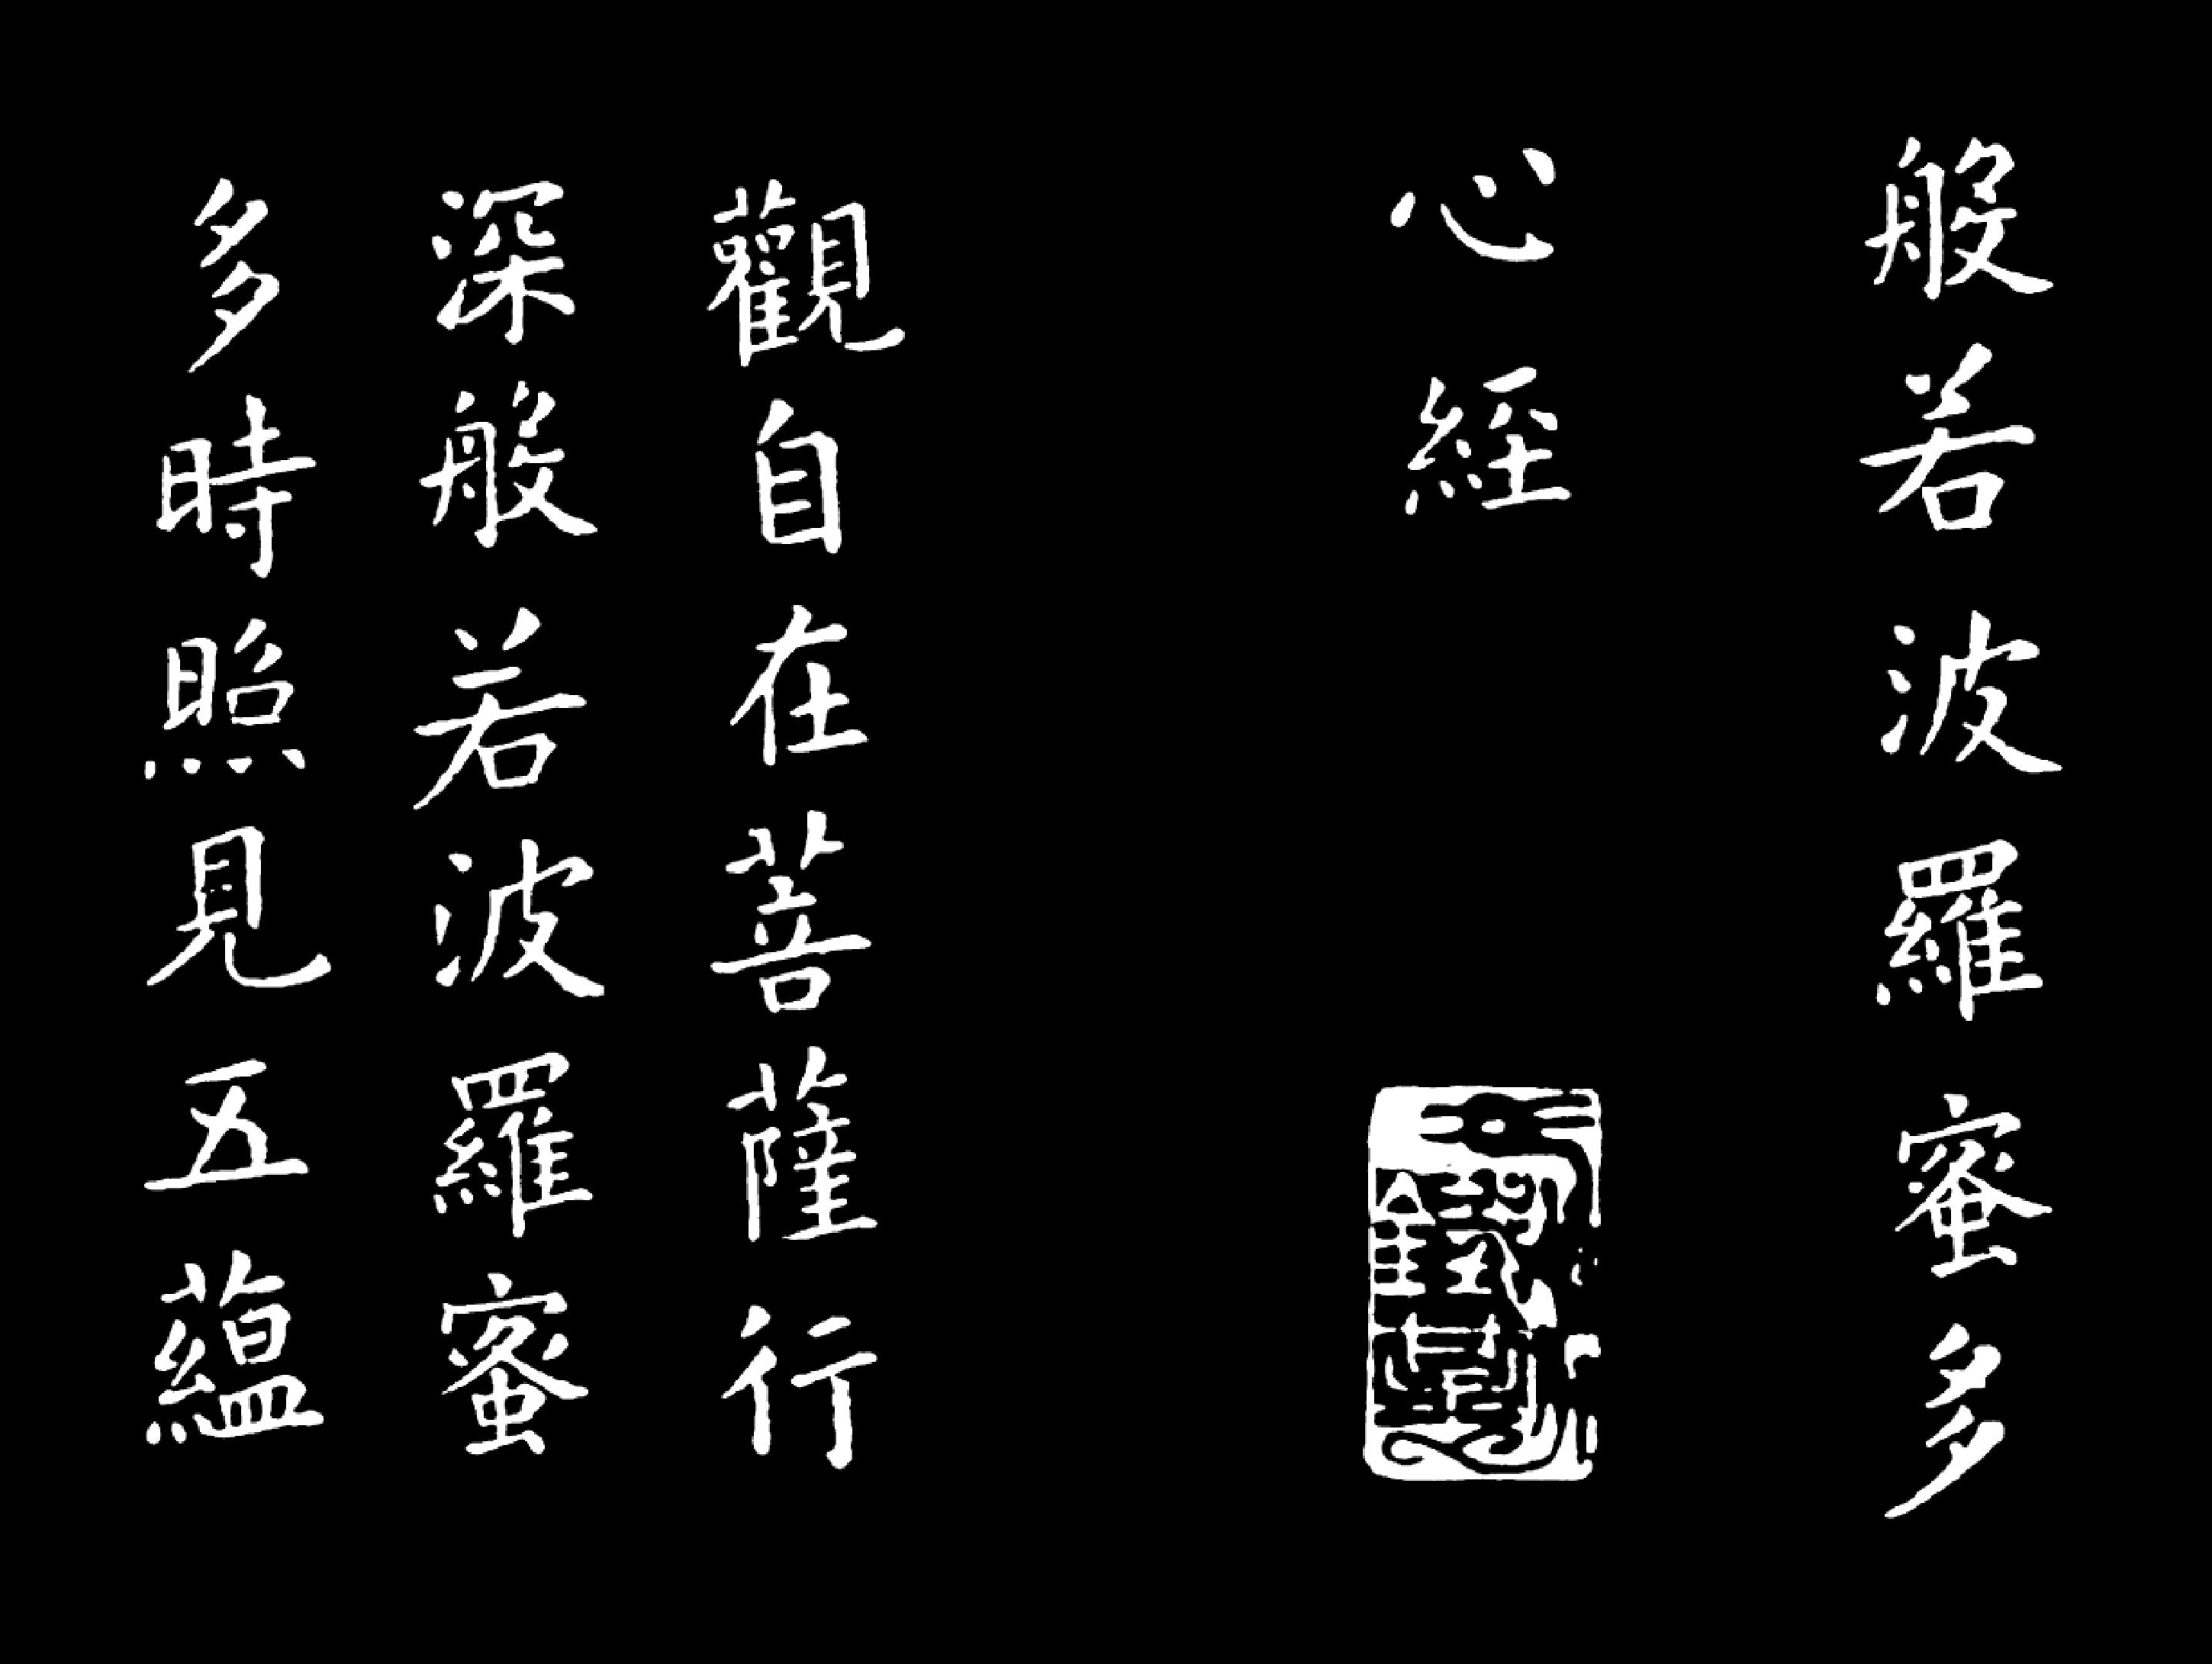 般若波羅蜜多
心経
觀自在菩薩行
深般若波羅蜜
多時照見五蘊